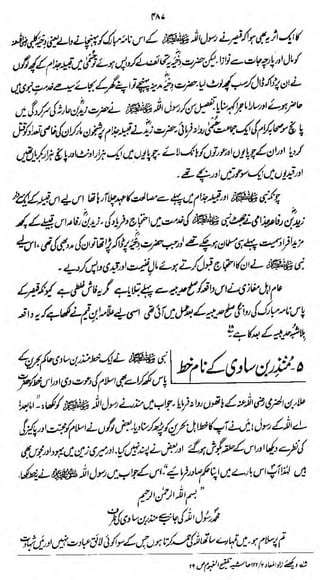 ۴۸۷
کا ایک اثر یہ بھی ہوا کہ قیصر نے رسول اللہ ﷺ کے اس نامۂ مبارک کو پہنچانے والے یعنی دحیہ کلبی رضی اللہ عنہ
کو مال اور پارچہ جات سے نوازا لیکن حضرت دحیہ یہ تحائف لے کر واپس ہوئے تو حسمیٰ میں قبیلہ جذام کے کچھ لوگوں
نے ان پر ڈاکہ ڈال کر سب کچھ لوٹ لیا۔ حضرت دحیہ مدینہ پہنچے تو اپنے گھر کے بجائے سیدھے خدمتِ نبوی میں
حاضر ہوئے اور سارا ماجرا کہہ سنایا۔ تفصیل سن کر رسول اللہ ﷺ نے حضرت زید بن حارثہ کی سرکردگی میں
پانچ سو صحابہ کرام کی ایک جماعت حسمیٰ روانہ فرمائی۔ حضرت زید نے قبیلہ جذام پر شبخون مار کر ان کی خاصی تعداد کو قتل
کر دیا اور ان کے چوپایوں اور عورتوں کو ہانک لائے۔ چوپایوں میں ایک ہزار اونٹ اور پانچ ہزار بکریاں تھیں
اور قیدیوں میں ایک سو عورتیں اور بچے تھے۔
چونکہ نبی ﷺ اور قبیلہ جذام میں پہلے سے مصالحت کا عہد چلا آ رہا تھا اس لیے اس قبیلہ کے ایک سردار
زید بن رفاعہ جذامی نے جھٹ نبی ﷺ کی خدمت میں احتجاج و فریاد کی۔ زید بن رفاعہ اس قبیلے کے کچھ
مزید افراد سمیت پہلے ہی مسلمان ہو چکے تھے اور جب حضرت دحیہ پر ڈاکہ پڑا تھا تو ان کی مدد بھی کی تھی، اس لیے
نبی ﷺ نے ان کا احتجاج قبول کرتے ہوئے مالِ غنیمت اور قیدی واپس کر دیے۔
عام اہل مغازی نے اس واقعہ کو صلح حدیبیہ سے پہلے بتلایا ہے مگر یہ فاش غلطی ہے کیونکہ قیصر کے
پاس نامۂ مبارک کی روانگی صلح حدیبیہ کے بعد عمل میں آئی تھی اسی لیے علامہ ابن قیم نے لکھا ہے کہ یہ واقعہ
بلاشبہ حدیبیہ کے بعد کا ہے
۵۔ منذر بن ساوی کے نام خط
نبی ﷺ نے ایک خط منذر بن ساوی حاکم بحرین کے
پاس لکھ کر اسے بھی اسلام کی دعوت دی اور اس خط کو حضرت
علاء بن الحضرمی رضی اللہ عنہ کے ہاتھوں روانہ فرمایا۔ جواب میں منذر نے رسول اللہ ﷺ کو لکھا: "اما بعد!
اے اللہ کے رسول! میں نے آپ کا خط اہل بحرین کو پڑھ کر سنا دیا۔ بعض لوگوں نے اسلام کو محبت اور پاکیزگی
کی نظر سے دیکھا اور اس کے حلقہ بگوش ہو گئے اور بعض نے پسند نہیں کیا۔ اور میری زمین میں یہود اور مجوس بھی
ہیں لہٰذا آپ اس بارے میں اپنا حکم صادر فرمائیے"۔ اس کے جواب میں رسول اللہ ﷺ نے یہ خط لکھا:
"بسم اللہ الرحمن الرحیم
محمد رسول اللہ کی جانب سے منذر بن ساوی کی طرف
تم پر سلام ہو۔ میں تمہارے ساتھ اللہ کی حمد کرتا ہوں جس کے سوا کوئی لائق عبادت نہیں اور میں شہادت
دیکھئے زاد المعاد ۲/۱۲۲، حاشیہ تلقیح الفہوم ص ۲۹